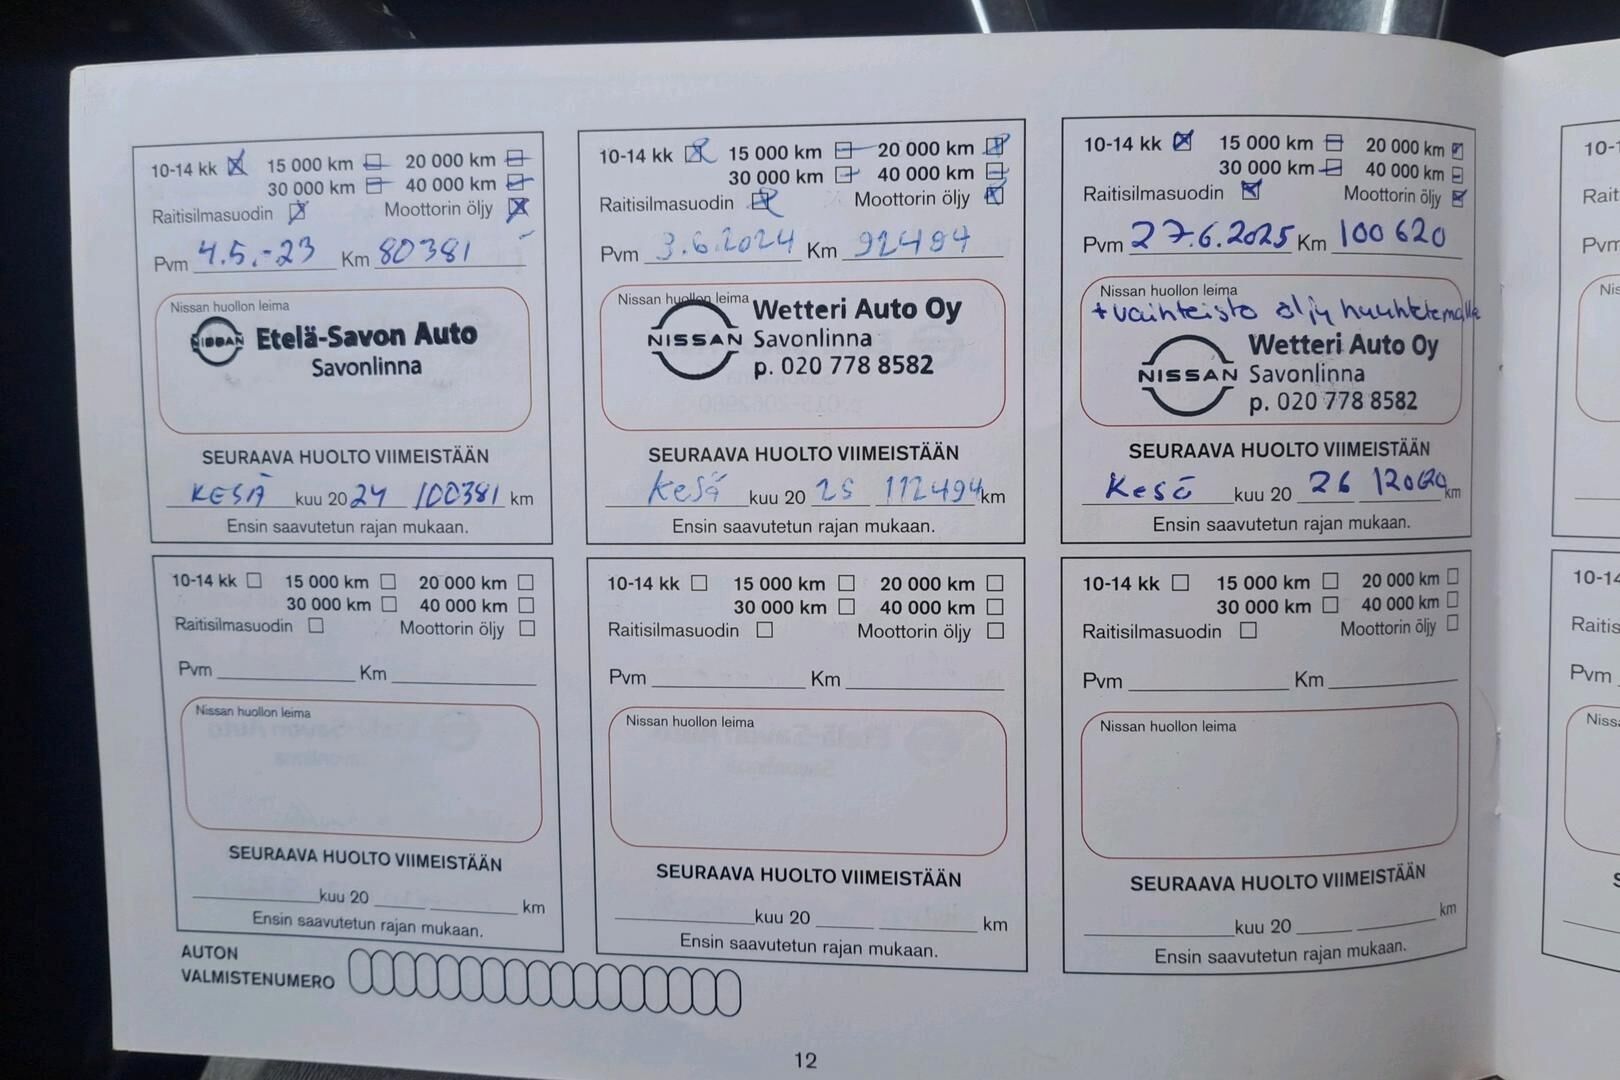 10-14 kk 15 000 km 20 000 km
30 000 km 40 000 km
Raitisilmasuodin Moottorin öljy
Pvm 4.5.-23 Km 80381
Nissan huollon leima
NISSAN Etelä-Savon Auto
Savonlinna
SEURAAVA HUOLTO VIIMEISTÄÄN
KESÄ kuu 20 24 100381 km
Ensin saavutetun rajan mukaan.
10-14 kk 15 000 km 20 000 km
30 000 km 40 000 km
Raitisilmasuodin Moottorin öljy
Pvm 3.6.2024 Km 92494
Nissan huollon leima
Wetteri Auto Oy
NISSAN Savonlinna
p. 020 778 8582
SEURAAVA HUOLTO VIIMEISTÄÄN
Kesä kuu 20 25 112494 km
Ensin saavutetun rajan mukaan.
10-14 kk 15 000 km 20 000 km
30 000 km 40 000 km
Raitisilmasuodin Moottorin öljy
Pvm 27.6.2025 Km 100 620
Nissan huollon leima
+ vaihteisto öljy huuhtelemalla
Wetteri Auto Oy
NISSAN Savonlinna
p. 020 778 8582
SEURAAVA HUOLTO VIIMEISTÄÄN
Kesä kuu 20 26 120620 km
Ensin saavutetun rajan mukaan.
10-14 kk 15 000 km 20 000 km
30 000 km 40 000 km
Raitisilmasuodin Moottorin öljy
Pvm Km
Nissan huollon leima
SEURAAVA HUOLTO VIIMEISTÄÄN
kuu 20 km
Ensin saavutetun rajan mukaan.
10-14 kk 15 000 km 20 000 km
30 000 km 40 000 km
Raitisilmasuodin Moottorin öljy
Pvm Km
Nissan huollon leima
SEURAAVA HUOLTO VIIMEISTÄÄN
kuu 20 km
Ensin saavutetun rajan mukaan.
10-14 kk 15 000 km 20 000 km
30 000 km 40 000 km
Raitisilmasuodin Moottorin öljy
Pvm Km
Nissan huollon leima
SEURAAVA HUOLTO VIIMEISTÄÄN
kuu 20 km
Ensin saavutetun rajan mukaan.
AUTON
VALMISTENUMERO
12
Pvm